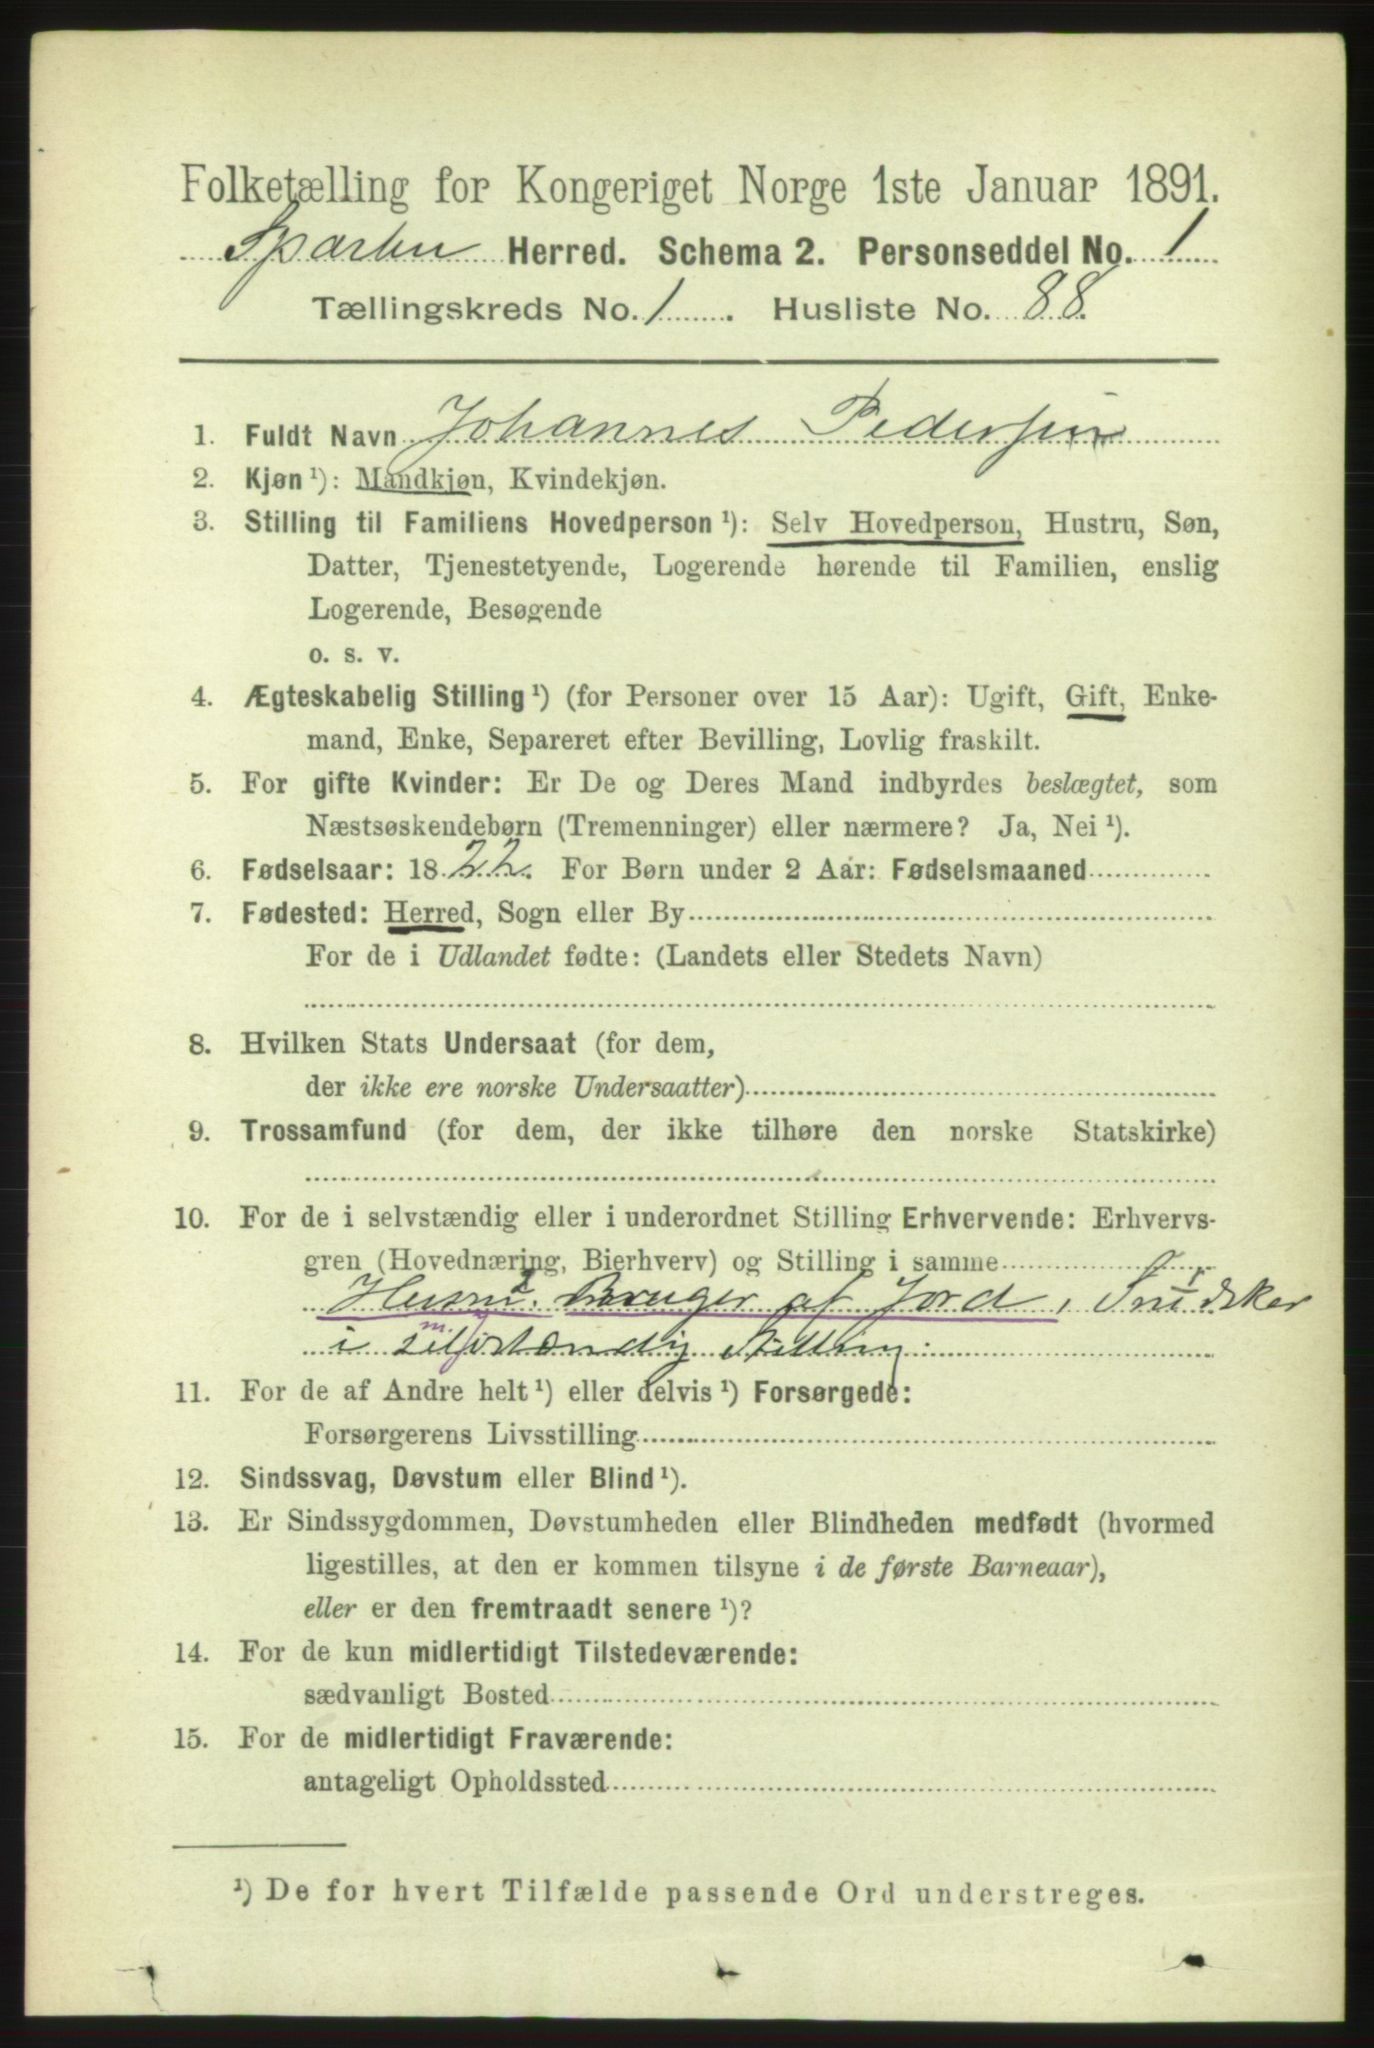 Folketælling for Kongeriget Norge 1ste Januar 1891.
Sparbu Herred. Schema 2. Personseddel No. 1
Tællingskreds No. 1. Husliste No. 88
1. Fuldt Navn Johannes Pedersen
2. Kjøn ¹): Mandkjøn, Kvindekjøn.
3. Stilling til Familiens Hovedperson ¹): Selv Hovedperson, Hustru, Søn,
Datter, Tjenestetyende, Logerende hørende til Familien, enslig
Logerende, Besøgende
o. s. v.
4. Ægteskabelig Stilling ¹) (for Personer over 15 Aar): Ugift, Gift, Enke-
mand, Enke, Separeret efter Bevilling, Lovlig fraskilt.
5. For gifte Kvinder: Er De og Deres Mand indbyrdes beslægtet, som
Næstsøskendebørn (Tremenninger) eller nærmere? Ja, Nei ¹).
6. Fødselsaar: 1822. For Børn under 2 Aar: Fødselsmaaned
7. Fødested: Herred, Sogn eller By
For de i Udlandet fødte: (Landets eller Stedets Navn)
8. Hvilken Stats Undersaat (for dem,
der ikke ere norske Undersaatter)
9. Trossamfund (for dem, der ikke tilhøre den norske Statskirke)
10. For de i selvstændig eller i underordnet Stilling Erhvervende: Erhvervs-
gren (Hovednæring, Bierhverv) og Stilling i samme
Husm. Bruger af Jord, Snedker
i selvstændig stilling
11. For de af Andre helt ¹) eller delvis ¹) Forsørgede:
Forsørgerens Livsstilling
12. Sindssvag, Døvstum eller Blind ¹).
13. Er Sindssygdommen, Døvstumheden eller Blindheden medfødt (hvormed
ligestilles, at den er kommen tilsyne i de første Barneaar),
eller er den fremtraadt senere ¹)?
14. For de kun midlertidigt Tilstedeværende:
sædvanligt Bosted
15. For de midlertidigt Fraværende:
antageligt Opholdssted
¹) De for hvert Tilfælde passende Ord understreges.